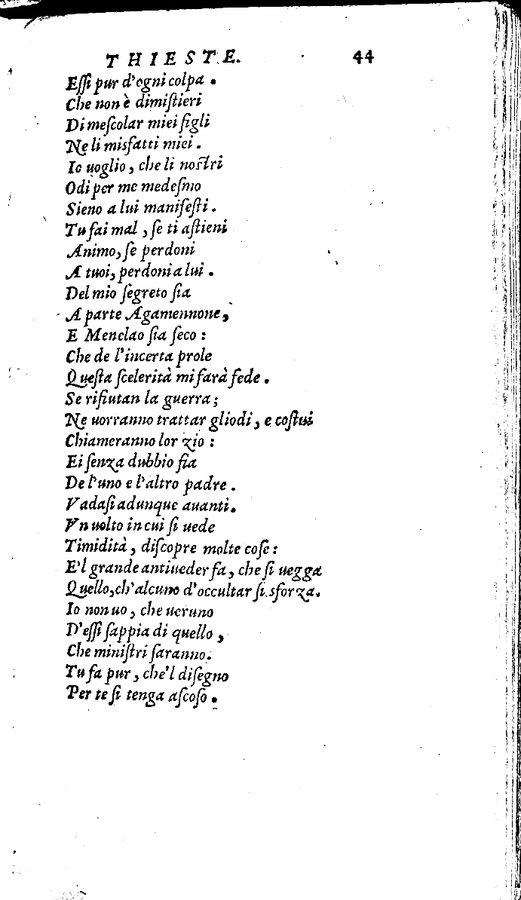 THIESTE. 44
Eſſi pur d'ogni colpa.
Che non è dimiſtieri
Di meſcolar miei figli
Ne li misfatti miei.
Io uoglio, che li noſtri
Odi per me medeſmo
Sieno a lui manifeſti.
Tu fai mal, ſe ti aſtieni
Animo, ſe perdoni
A tuoi, perdoni a lui.
Del mio ſegreto ſia
A parte Agamennone,
E Menelao ſia ſeco:
Che de l'incerta prole
Queſta ſcelerità mi farà fede.
Se rifiutan la guerra;
Ne uorranno trattar gliodi, e coſtui
Chiameranno lor zio:
Ei ſenza dubbio fia
De l'uno e l'altro padre.
Vadaſi adunque auanti.
Vn uolto in cui ſi uede
Timidità, diſcopre molte coſe:
E'l grande antiueder fa, che ſi uegga
Quello, ch'alcuno d'occultar ſi sforza.
Io non uo, che ueruno
D'eſſi ſappia di quello,
Che miniſtri ſaranno.
Tu fa pur, che'l diſegno
Per te ſi tenga aſcoſo.